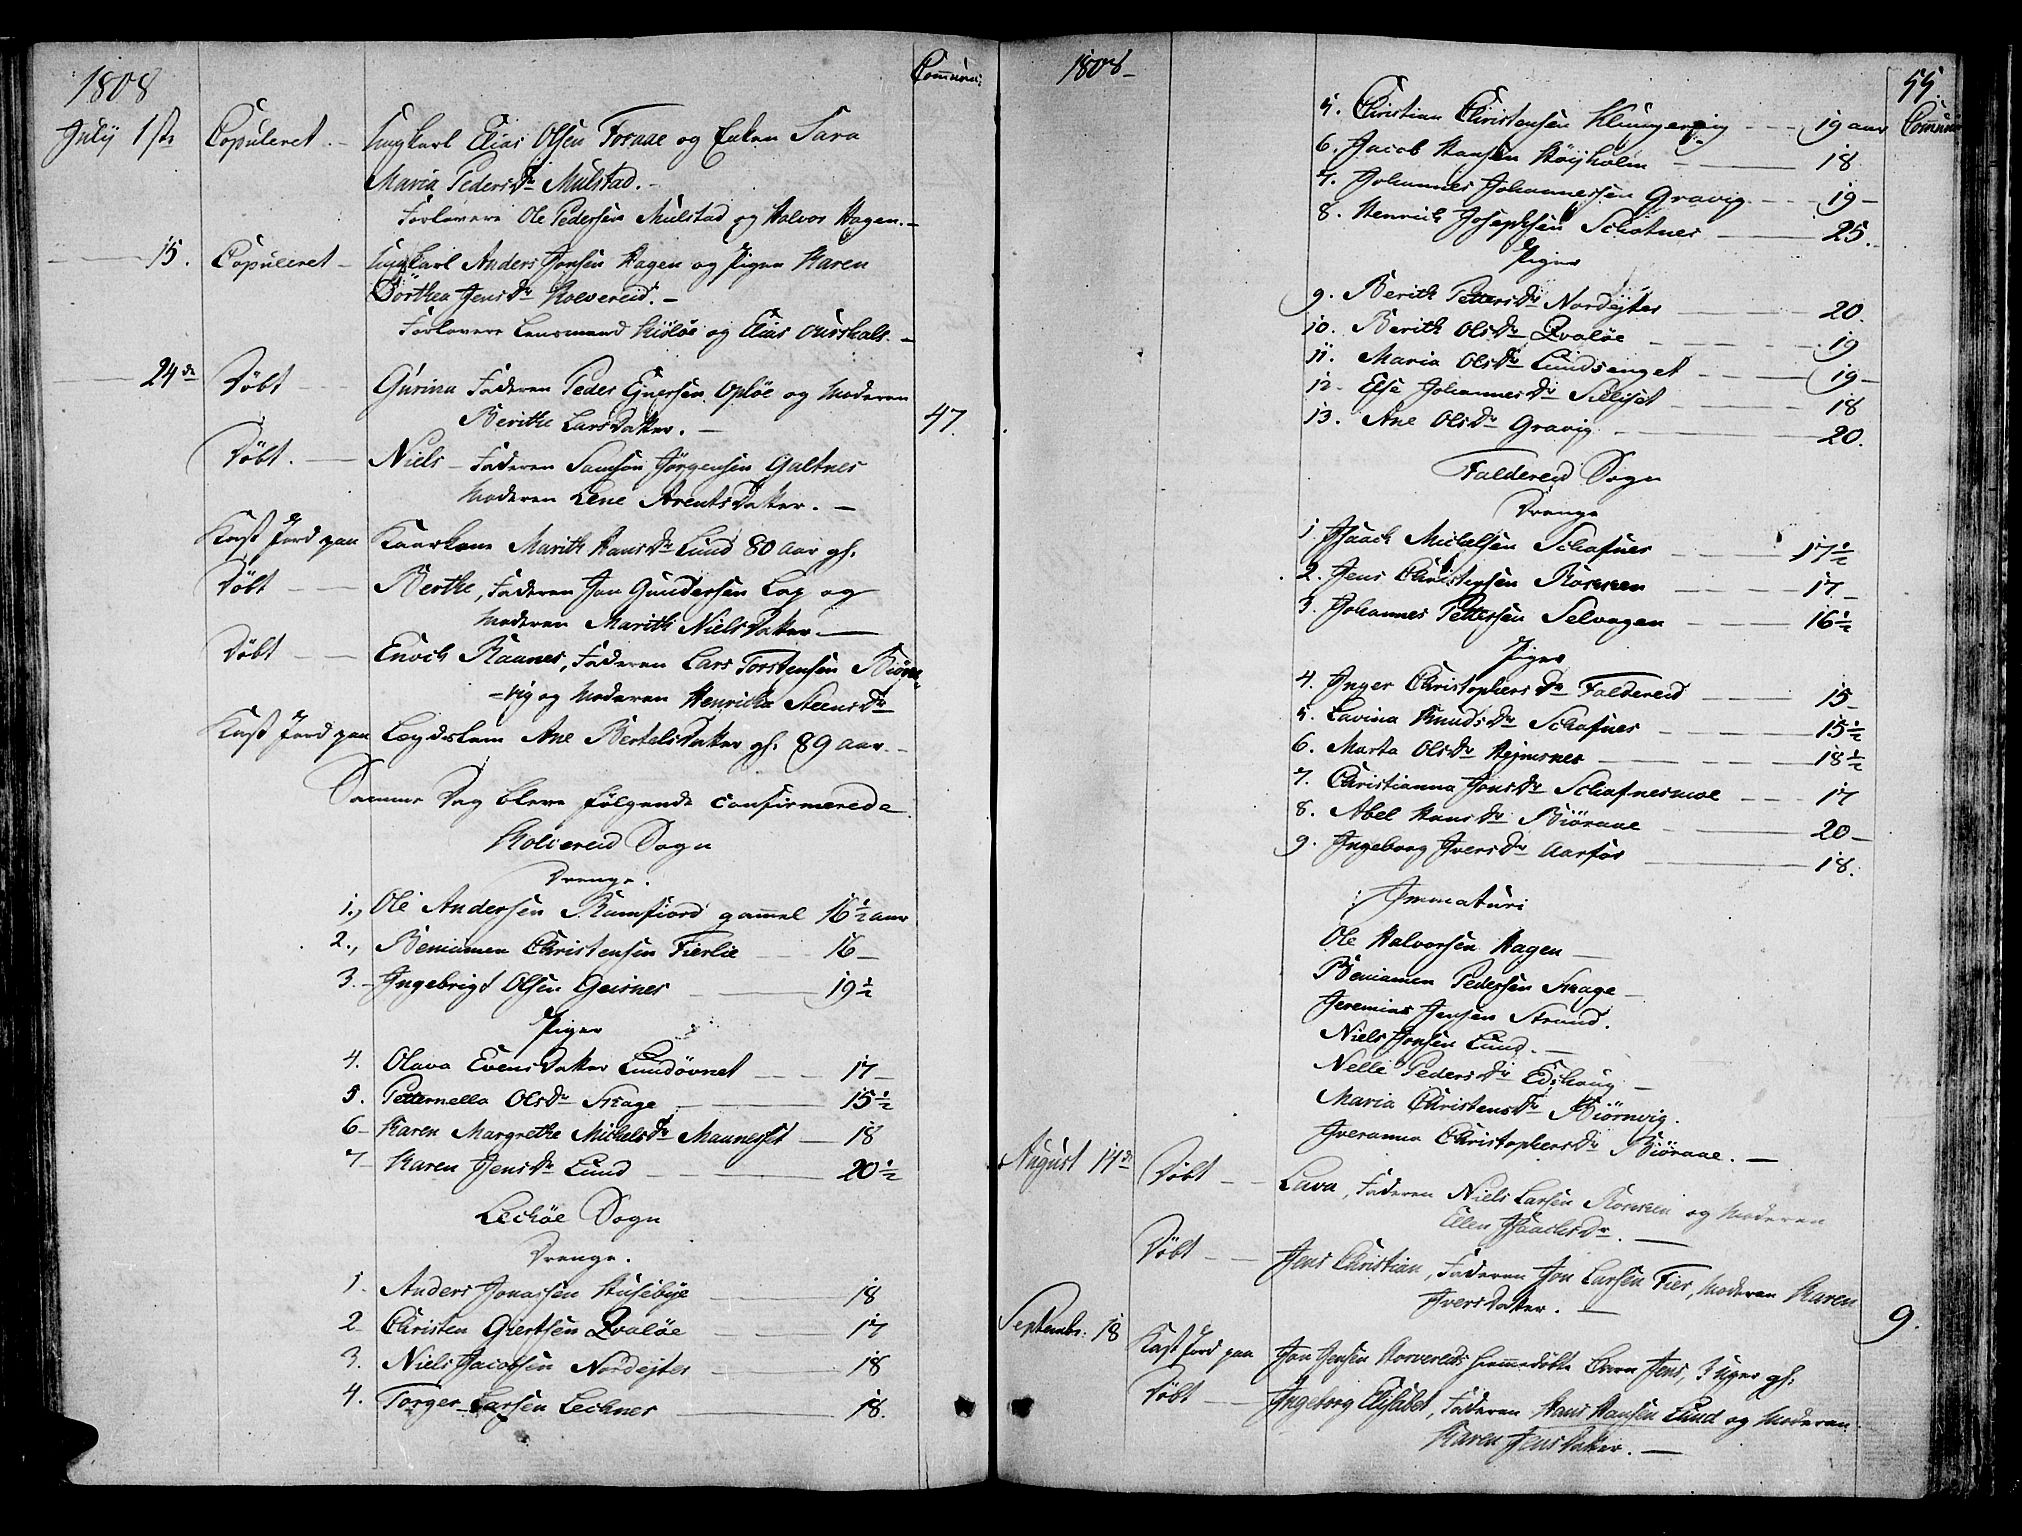 1808
Commun:
July 1ste Copuleret. - Ungkarl Elias Olsen Foraae og Enken Sara
Maria PedersDr Mulstad. -
Forlovere Ole Pedersen Mulstad og Halvor Hagen. -
15. Copuleret - Ungkarl Anders Jonsen Hagen og Pigen Karen
Dorthea JensDr Kolvereid. -
Forlovere Lensmand Kiöløe og Elias Aurshals. -
24de Döbt Gurina Faderen Peder Ejnersen Opløe og Moderen
Berithe LarsDatter. - 47.
Döbt. - Niels - Faderen Samson Jørgensen Galtnes
Moderen Lene ArentsDatter. -
Kast Jord paa Kaarkone Marith HansDr Lund 80 aar gl.
Döbt - Berthe, Faderen Jon Gundersen Lap og
Moderen Marith NielsDatter -
Döbt - Enoch Raanes, Faderen Lars Torstensen Biørn-
-vig og Moderen Henricka SteensDr
Kast Jord paa Legdslem Ane BertelsDatter gl. 89 aar -
Samme Dag bleve følgende confirmerede
Kolvereid Sogn
Drenge.
1., Ole Andersen Ramfiord gammel 16 1/2 aar
2., Beniamen Christensen Fierlie - 16 -
3. - Ingebrigt Olsen Geisnes - 19 1/2
Piger
4. Olava EvensDatter Lundövnet - 17 -
5. Petternella OlsDr Skage - 15 1/2
6 - Karen Margrethe MichelsDr Maunesset - 18
7 - Karen JensDr Lund - 20 1/2
Leckøe Sogn
Drenge.
1. Anders Jonassen Husebye - 18
2 - Christen Giertsen Qvaløe - 17
3. Niels Jacobsen Nordejter - 18
4. Torger Larsen Lechnes - 18.
1808 -
55.
Commun
5. Christian Christensen Klungervig - 19 aar
6. Jacob Hansen Høyholm - 18
7. Johannes Johannessen Gravig - 19 -
8. Henrich Josephsen Schotnes - 25. -
Piger
9. Berith PettersDr Nordejter - 20.
10. Berith OlsDr Qvaløe - 19
11. Maria OlsDr Lundsenget - 19 -
12 - Else JohannesDr Selliset - 18
13. Ane OlsDr Gravig - 20.
Foldereid Sogn
Drenge
1 Isaach Michelsen Schafnes - 17 1/2
2. Jens Christensen - 17 -
3. Johannes Pettersen Selvogen - 16 1/2
Piger
4. Inger ChristophersDr Foldereid - 15 -
5. Lavina KnudsDr Schafnes - 15 1/2
6. Marta OlsDr - 18 1/2
7. Christianna JonsDr Schafnesmoe - 17
8. Abel HansDr Biöraae - 20 -
9. Ingeborg IversDr Aarfor - 18.
Immaturi
Ole Halvorsen Hagen -
Beniamen Pedersen Skage -
Jeremias Jensen Strand.
Niels Jonsen Lund. -
Nelle PedersDr Edshaug -
Maria ChristensDr Biørnvig.
Iveranna ChristophersDr Biöraae. -
August 14de Döbt - Lava, Faderen Niels Larsen og Moderen
Ellen IsaachsDr. -
Döbt - Jens Christian, Faderen Jon Larsen Fier, Moderen Karen
IversDatter. - 9.
Septembr: 18 Kast Jord paa Jon Jensen Horvereids hiemmedøbte Barn Jens, 3 uger gl:
Döbt - Ingeborg Elisabet, Faderen Hans Hansen Lund og Moderen
Karen JensDatter. -